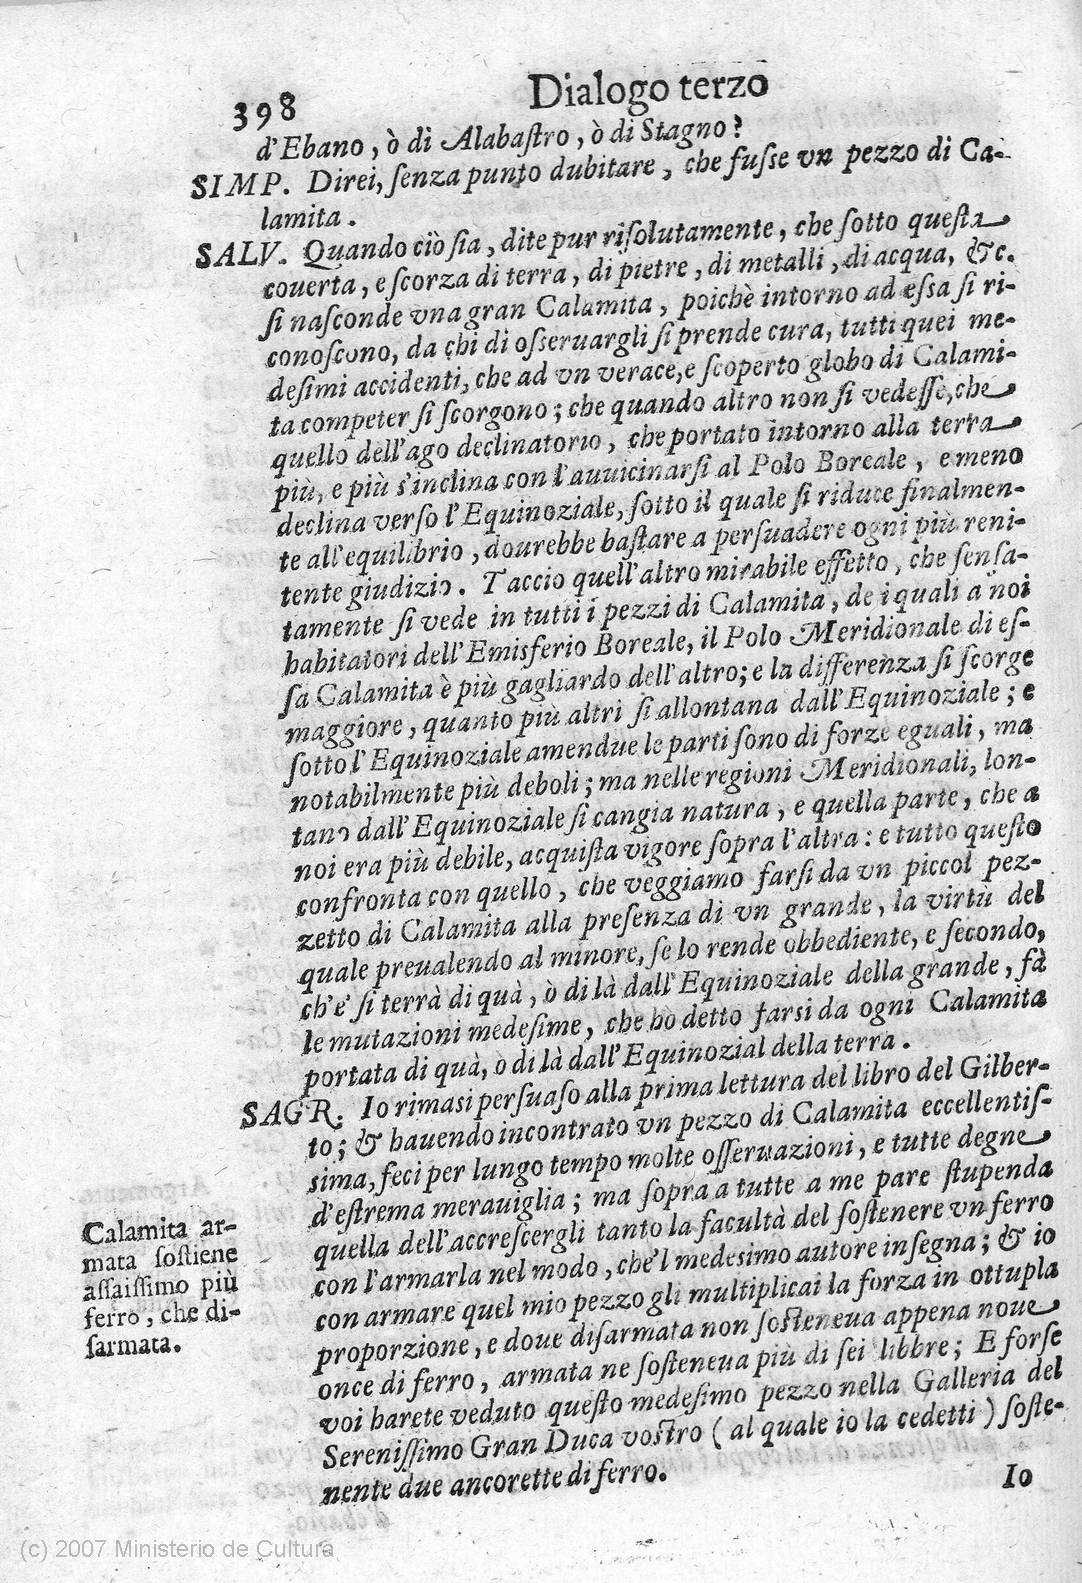 398 Dialogo terzo
d'Ebano, ò di Alabaſtro, ò di Stagno?
SIMP. Direi, ſenza punto dubitare, che fuſse vn pezzo di Ca-
lamita.
SALV. Quando ciò ſia, dite pur riſolutamente, che ſotto queſta
couerta, e ſcorza di terra, di pietre, di metalli, di acqua, &c.
ſi naſconde vna gran Calamita, poichè intorno ad eſsa ſi ri-
conoſcono, da chi di oſseruargli ſi prende cura, tutti quei me-
deſimi accidenti, che ad vn verace, e ſcoperto globo di Calami-
ta competer ſi ſcorgono; che quando altro non ſi vedeſſe, che
quello dell'ago declinatorio, che portato intorno alla terra
più, e più s'inclina con l'auuicinarſi al Polo Boreale, e meno
declina verſo l'Equinoziale, ſotto il quale ſi riduce finalmen-
te all'equilibrio, dourebbe baſtare a perſuadere ogni più reni-
tente giudizio. Taccio quell'altro mirabile effetto, che ſenſa-
tamente ſi vede in tutti i pezzi di Calamita, de i quali a noi
habitatori dell'Emisferio Boreale, il Polo Meridionale di eſ-
ſa Calamita è più gagliardo dell'altro; e la differenza ſi ſcorge
maggiore, quanto più altri ſi allontana dall'Equinoziale; e
ſotto l'Equinoziale amendue le parti ſono di forze eguali, ma
notabilmente più deboli; ma nelle regioni Meridionali, lon-
tano dall'Equinoziale ſi cangia natura, e quella parte, che a
noi era più debile, acquiſta vigore ſopra l'altra: e tutto queſto
confronta con quello, che veggiamo farſi da vn piccol pez-
zetto di Calamita alla preſenza di vn grande, la virtù del
quale preualendo al minore, ſe lo rende obbediente, e ſecondo,
ch'e' ſi terrà di quà, ò di là dall'Equinoziale della grande, fà
le mutazioni medeſime, che ho detto farsi da ogni Calamita
portata di quà, ò di là dall'Equinozial della terra.
SAGR. Io rimaſi perſuaſo alla prima lettura del libro del Gilber-
to; & hauendo incontrato vn pezzo di Calamita eccellentiſ-
ſima, feci per lungo tempo molte oſſeruazioni, e tutte degne
d'eſtrema merauiglia; ma ſopra a tutte a me pare ſtupenda
quella dell'accreſcergli tanto la facultà del ſoſtenere vn ferro
con l'armarla nel modo, che'l medesimo autore inſegna; & io
con armare quel mio pezzo gli multiplicai la forza in ottupla
proporzione, e doue diſarmata non ſoſteneua appena noue
once di ferro, armata ne ſoſteneua più di ſei libbre; E forſe
voi harete veduto queſto medeſimo pezzo nella Galleria del
Sereniſſimo Gran Duca voſtro (al quale io la cedetti) ſoſte-
nente due ancorette di ferro.
Io
Calamita ar-
mata ſoſtiene
aſſaiſſimo più
ferro, che di-
ſarmata.
(c) 2007 Ministerio de Cultura